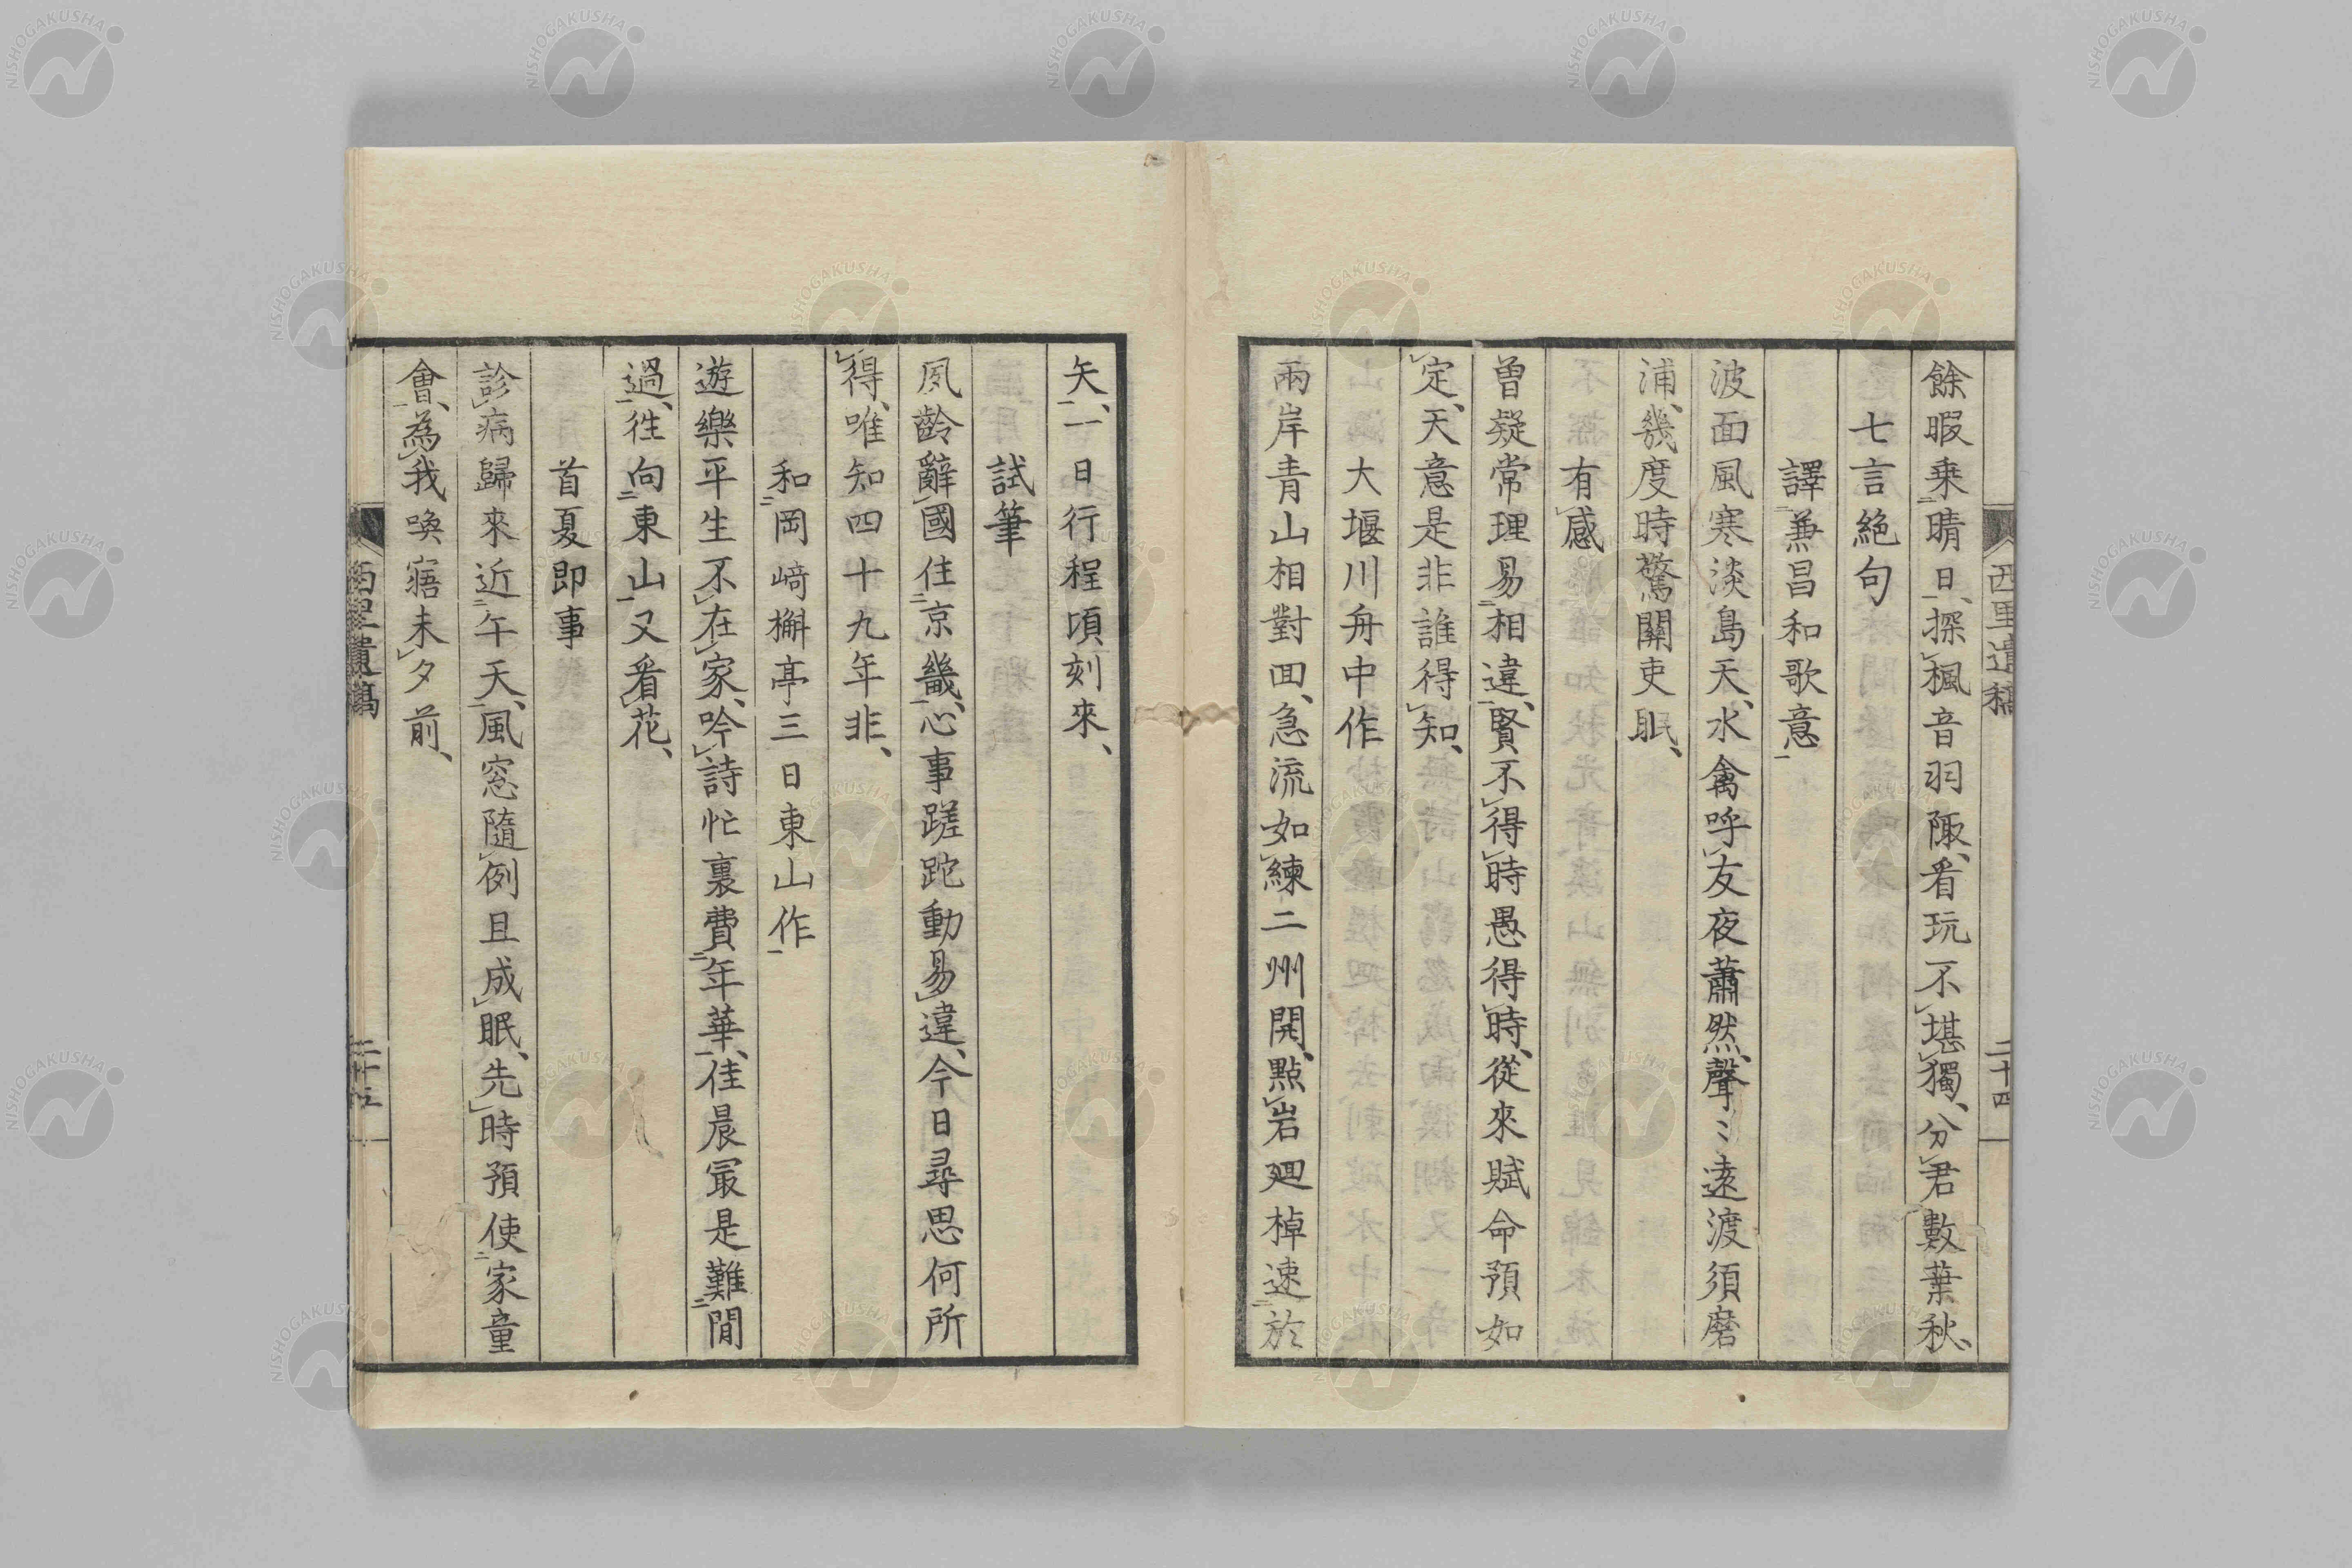 西里遺稿
二十四
餘暇乘晴日、探楓音羽陬、看玩不堪獨、分君數葉秋、
七言絕句
譯兼昌和歌意
波面風寒淡島天、水禽呼友夜蕭然、聲〻遠渡須磨
浦、幾度時驚關吏眠、
有感
曾疑常理易相違、賢不得時愚得時、從來賦命預如
定、天意是非誰得知、
大堰川舟中作
兩岸青山相對回、急流如練二州開、點岩廻棹速於
矢、一日行程頃刻來、
試筆
夙齡辭國住京畿、心事蹉跎動易違、今日尋思何所
得、唯知四十九年非、
和岡﨑槲亭三日東山作
遊樂平生不在家、吟詩忙裏費年華、佳晨㝡是難閒
過、徃向東山又看花、
首夏即事
診病歸來近午天、風窓隨例且成眠、先時預使家童
會、為我喚寤未夕前、
西里遺稿
二十五
NISHOGAKUSHA